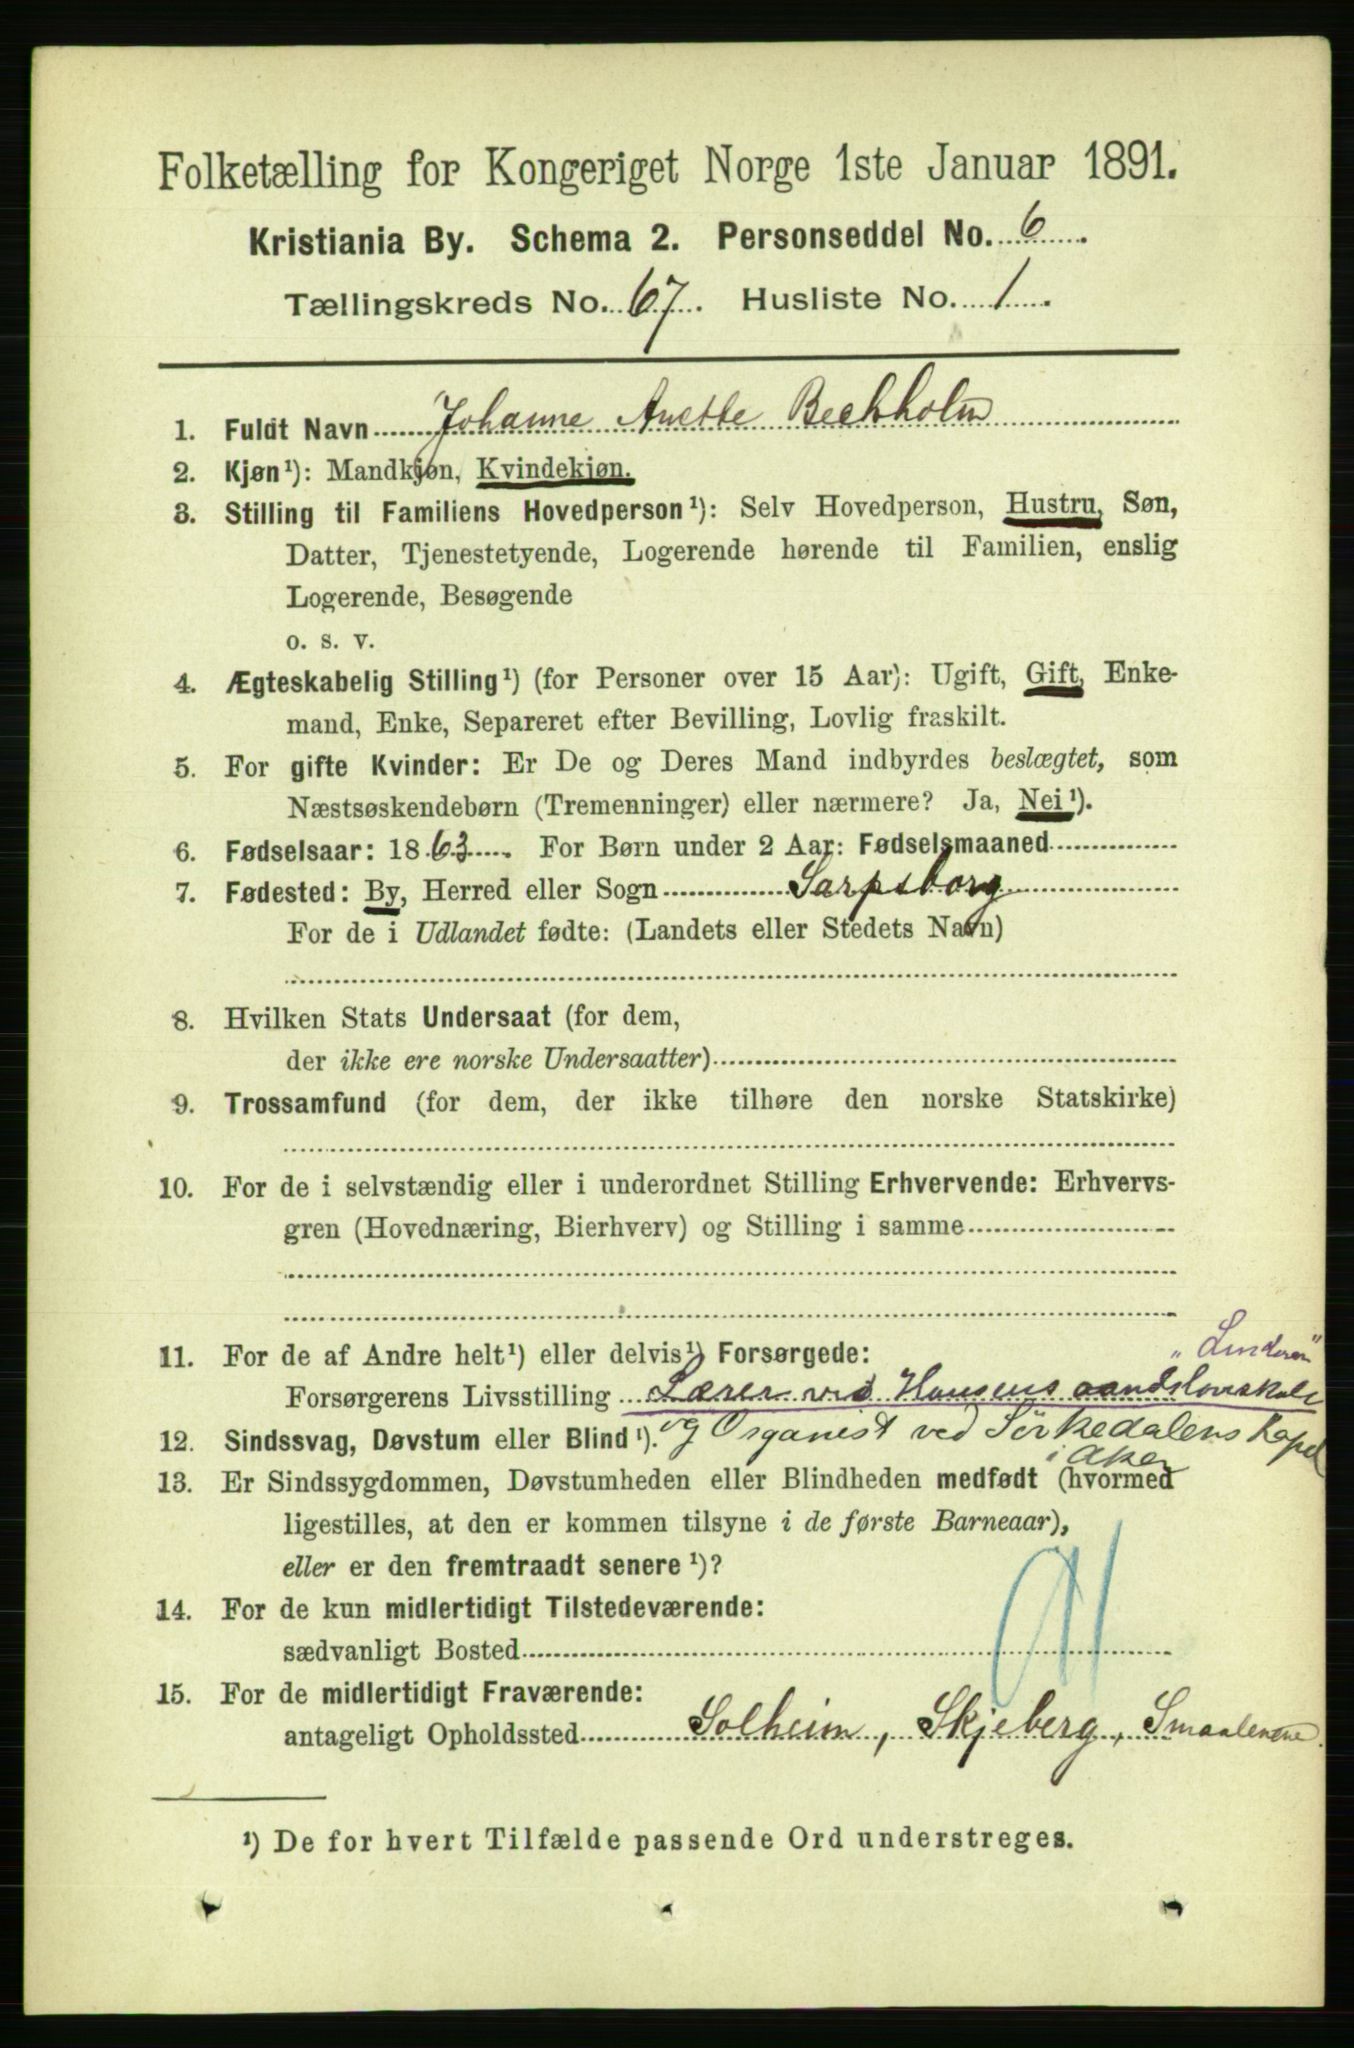 Folketælling for Kongeriget Norge 1ste Januar 1891.
Kristiania By. Schema 2. Personseddel No. 6
Tællingskreds No. 67. Husliste No. 1
1. Fuldt Navn Johanne Anette Beckholm
2. Kjøn¹): Mandkjøn, Kvindekjøn.
3. Stilling til Familiens Hovedperson¹): Selv Hovedperson, Hustru, Søn,
Datter, Tjenestetyende, Logerende hørende til Familien, enslig
Logerende, Besøgende
o. s. v.
4. Ægteskabelig Stilling¹) (for Personer over 15 Aar): Ugift, Gift, Enke-
mand, Enke, Separeret efter Bevilling, Lovlig fraskilt.
5. For gifte Kvinder: Er De og Deres Mand indbyrdes beslægtet, som
Næstsøskendebørn (Tremenninger) eller nærmere? Ja, Nei¹).
6. Fødselsaar: 1863. For Børn under 2 Aar: Fødselsmaaned
7. Fødested: By, Herred eller Sogn Sarpsborg
For de i Udlandet fødte: (Landets eller Stedets Navn)
8. Hvilken Stats Undersaat (for dem,
der ikke ere norske Undersaatter)
9. Trossamfund (for dem, der ikke tilhøre den norske Statskirke)
10. For de i selvstændig eller i underordnet Stilling Erhvervende: Erhvervs-
gren (Hovednæring, Bierhverv) og Stilling i samme
11. For de af Andre helt¹) eller delvis¹) Forsørgede:
Forsørgerens Livsstilling Lærer ved Hansens
12. Sindssvag, Døvstum eller Blind¹). og Organist ved Sörkedalens Kapel
i Aker
13. Er Sindssygdommen, Døvstumheden eller Blindheden medfødt (hvormed
ligestilles, at den er kommen tilsyne i de første Barneaar),
eller er den fremtraadt senere¹)?
14. For de kun midlertidigt Tilstedeværende:
sædvanligt Bosted
15. For de midlertidigt Fraværende:
antageligt Opholdssted Solheim, Skjeberg, Smaalenene.
¹) De for hvert Tilfælde passende Ord understreges.